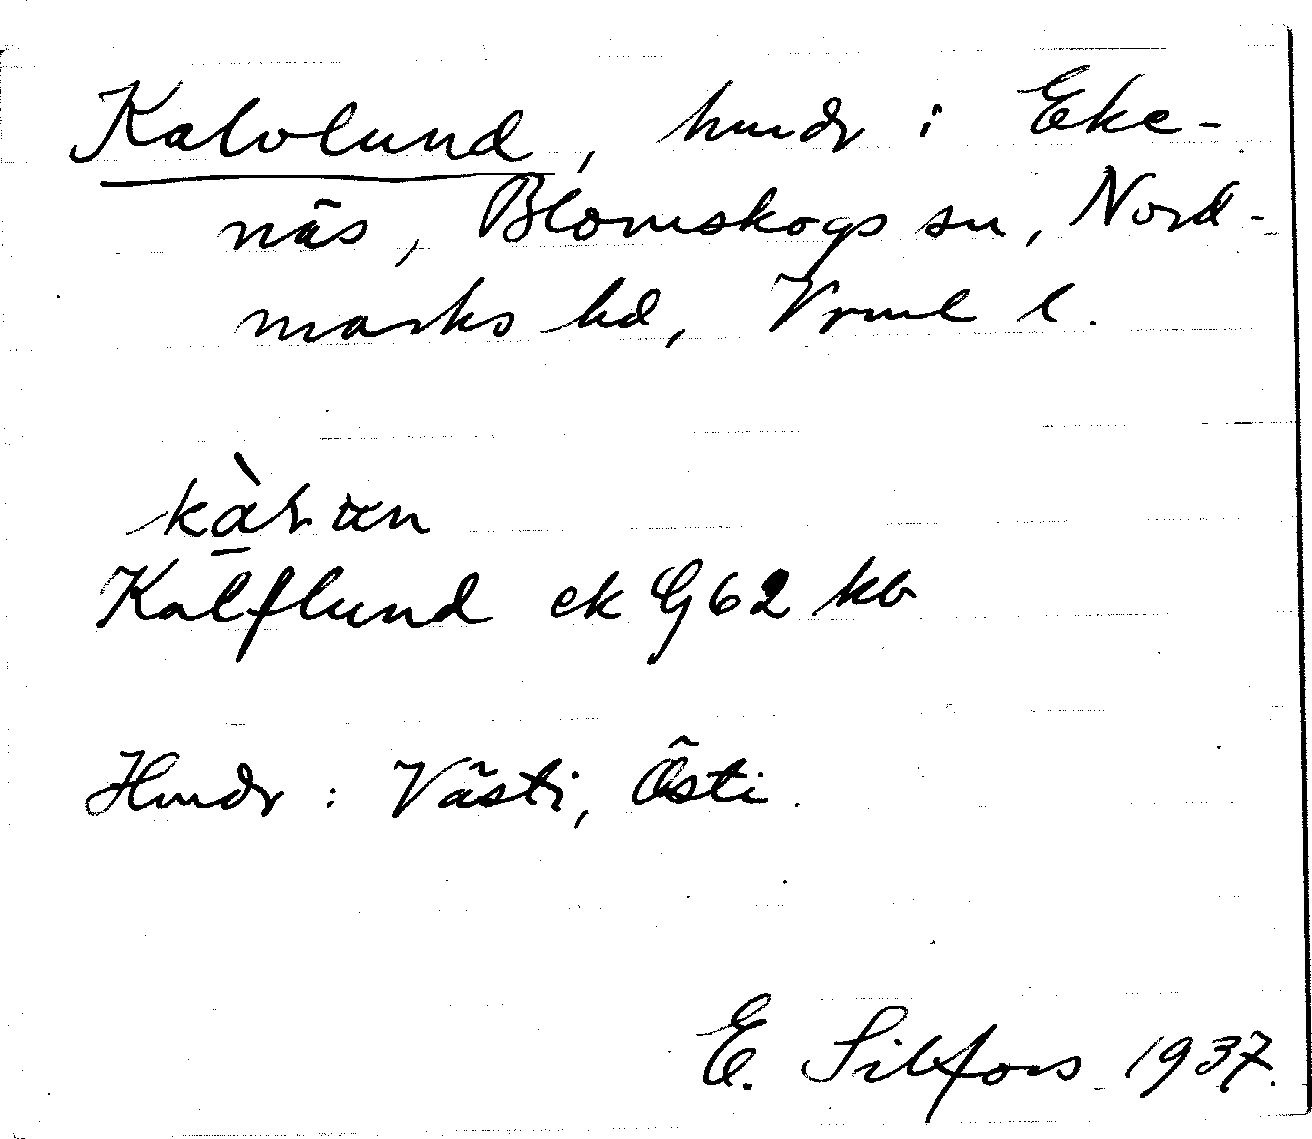 Kalvlund, hmdr i Eke-
näs, Blomskogs sn, Nord-
marks hd, Vrml l.
Kalflund ek G62 kb
Hmdr: Västi, Östi.
E. Silfors 1937.